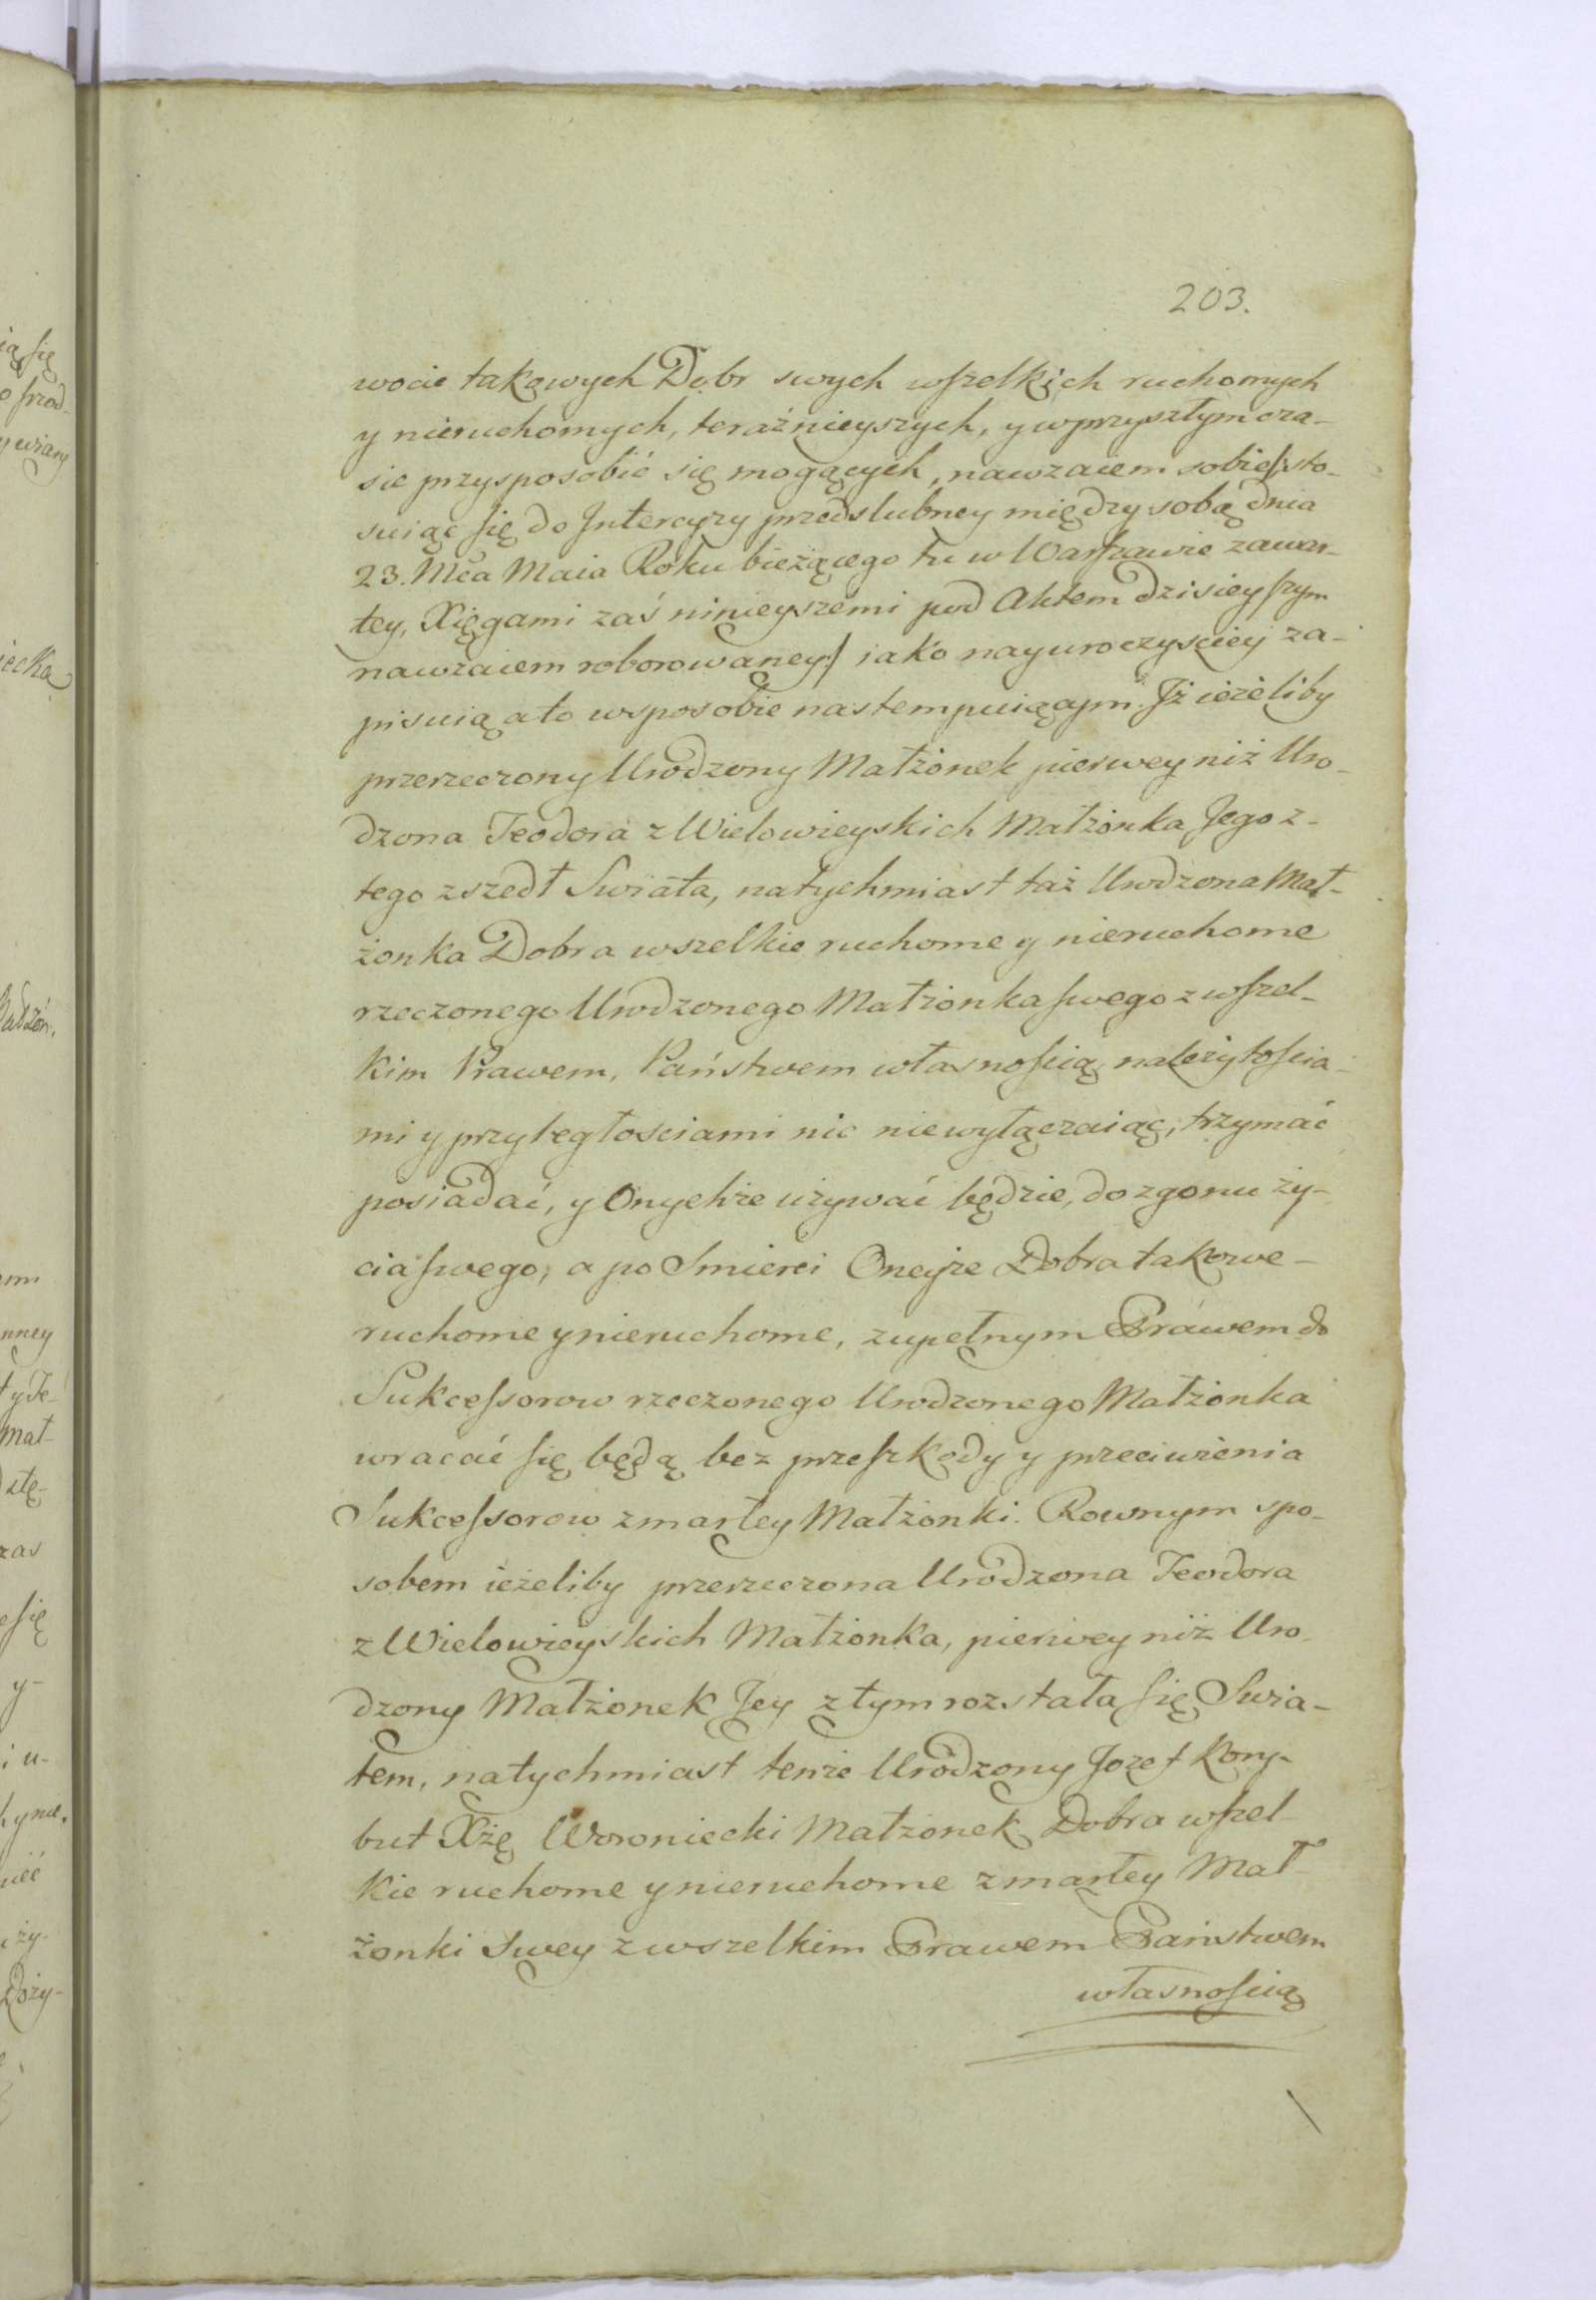 203.
wocie takowych Dobr swych wszelkich ruchomych
y nieruchomych, teraźnieyszych, y w przyszłym cza-
sie przysposobić się mogących, nawzaiem sobie /: sto-
suiąc się do Intercyzy przedslubney między sobą dnia
23. Mca Maia Roku bieżącego tu w Warszawie zawar-
tey, Xięgami zaś ninieyszemi pod Aktem dzisieyszym
nawzaiem roborowaney :/ iako nayuroczyściey za-
pisuią a to w sposobie nastempuiącym. Jż ieżeliby
przerzeczony Urodzony Małżonek pierwey niż Uro-
dzona Teodora z Wielowieyskich Małżonka Jego z-
tego zszedł Swiata, natychmiast taż Urodzona Mał-
żonka Dobra wszelkie ruchome y nieruchome
rzeczonego Urodzonego Małżonka swego z wszel-
kim Prawem, Państwem własnością, należytościa-
mi y przyległościami nic niewyłączaiąc, trzymać
posiadać, y Onychże używać będzie, do zgonu ży-
cia swego, a po Smierci Oneyże Dobra takowe-
ruchome y nieruchome, zupełnym Prawem do
Sukcessorow rzeczonego Urodzonego Małżonka
wracać się będą bez przeszkody y przeciwienia
Sukcessorow zmarłey Małżonki. Rownym spo-
sobem ieżeliby przerzeczona Urodzona Teodora
z Wielowieyskich Małżonka, pierwey niż Uro-
dzony Małżonek Jey z tym rozstała się Swia-
tem, natychmiast tenże Urodzony Jozef Kory-
but Xżę Woroniecki Małżonek Dobra wszel-
kie ruchome y nieruchome zmarłey Mał-
żonki Swey z wszelkim Prawem Państwem
własnością